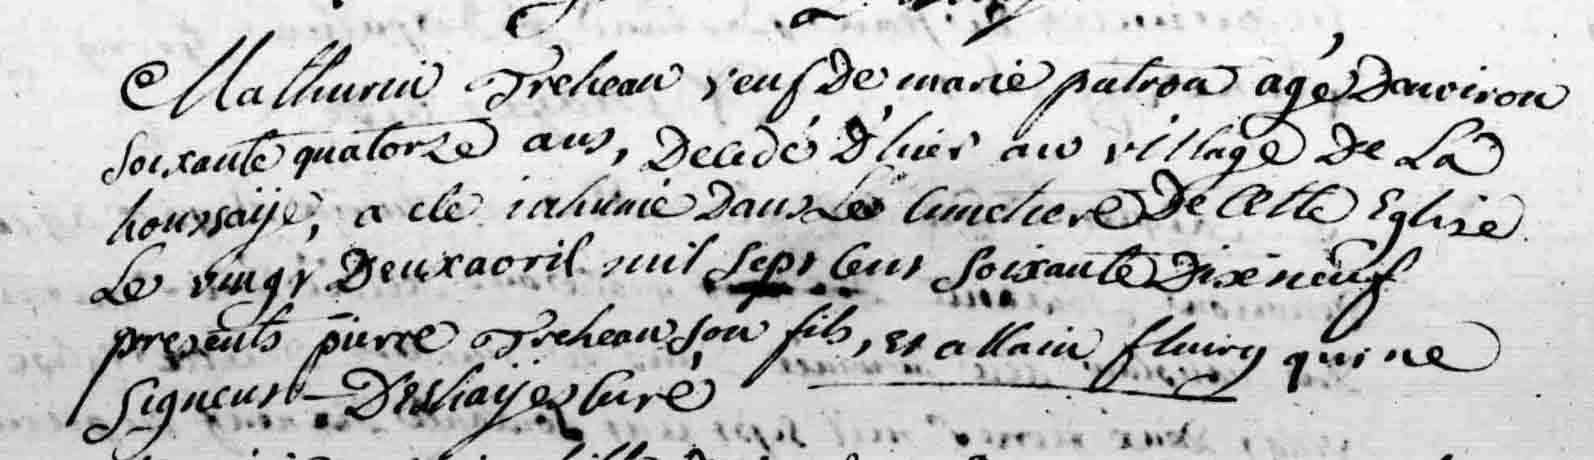 Mathurin Treheau veuf De marie patron agé Denviron
soixante quatorze ans, Decedé D'hier au village De La
houssaÿe, a ete inhumé Dans Le Cimetiere De Cette Eglise
Le vingt Deux avril mil sept Cent soixante Dix neuf
presents pierre Treheau son fils, et allain fleury qui ne
signent - Deshaÿes Curé